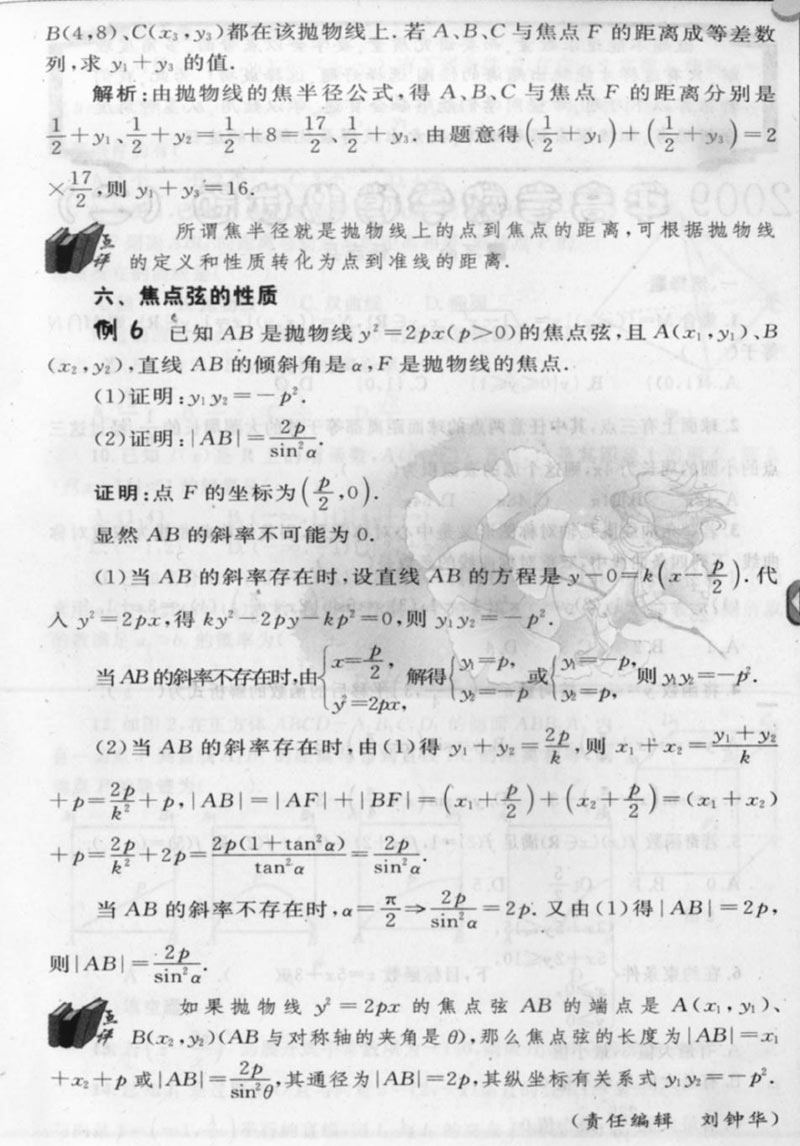 B(4,8)、C(x₃,y₃)都在该抛物线上.若 A、B、C 与焦点 F 的距离成等差数
列,求 y₁+y₃ 的值.
解析:由抛物线的焦半径公式,得 A、B、C 与焦点 F 的距离分别是
1/2+y₁、1/2+y₂=1/2+8=17/2、1/2+y₃.由题意得(1/2+y₁)+(1/2+y₃)=2
×17/2,则 y₁+y₃=16.
点评 所谓焦半径就是抛物线上的点到焦点的距离,可根据抛物线
的定义和性质转化为点到准线的距离.
六、焦点弦的性质
例 6 已知 AB 是抛物线 y²=2px(p>0)的焦点弦,且 A(x₁,y₁)、B
(x₂,y₂),直线 AB 的倾斜角是 α,F 是抛物线的焦点.
(1)证明:y₁y₂=-p².
(2)证明:|AB|=2p/sin²α.
证明:点 F 的坐标为(p/2,0).
显然 AB 的斜率不可能为 0.
(1)当 AB 的斜率存在时,设直线 AB 的方程是 y-0=k(x-p/2).代
入 y²=2px,得 ky²-2py-kp²=0,则 y₁y₂=-p².
当 AB 的斜率不存在时,由{x=p/2, y²=2px, 解得{y₁=p, y₂=-p 或{y₁=-p, y₂=p, 则 y₁y₂=-p².
(2)当 AB 的斜率存在时,由(1)得 y₁+y₂=2p/k,则 x₁+x₂=(y₁+y₂)/k
+p=2p/k²+p,|AB|=|AF|+|BF|=(x₁+p/2)+(x₂+p/2)=(x₁+x₂)
+p=2p/k²+2p=2p(1+tan²α)/tan²α=2p/sin²α.
当 AB 的斜率不存在时,α=π/2⇒2p/sin²α=2p.又由(1)得|AB|=2p,
则|AB|=2p/sin²α.
点评 如果抛物线 y²=2px 的焦点弦 AB 的端点是 A(x₁,y₁)、
B(x₂,y₂)(AB 与对称轴的夹角是 θ),那么焦点弦的长度为|AB|=x₁
+x₂+p 或|AB|=2p/sin²θ,其通径为|AB|=2p,其纵坐标有关系式 y₁y₂=-p².
(责任编辑 刘钟华)